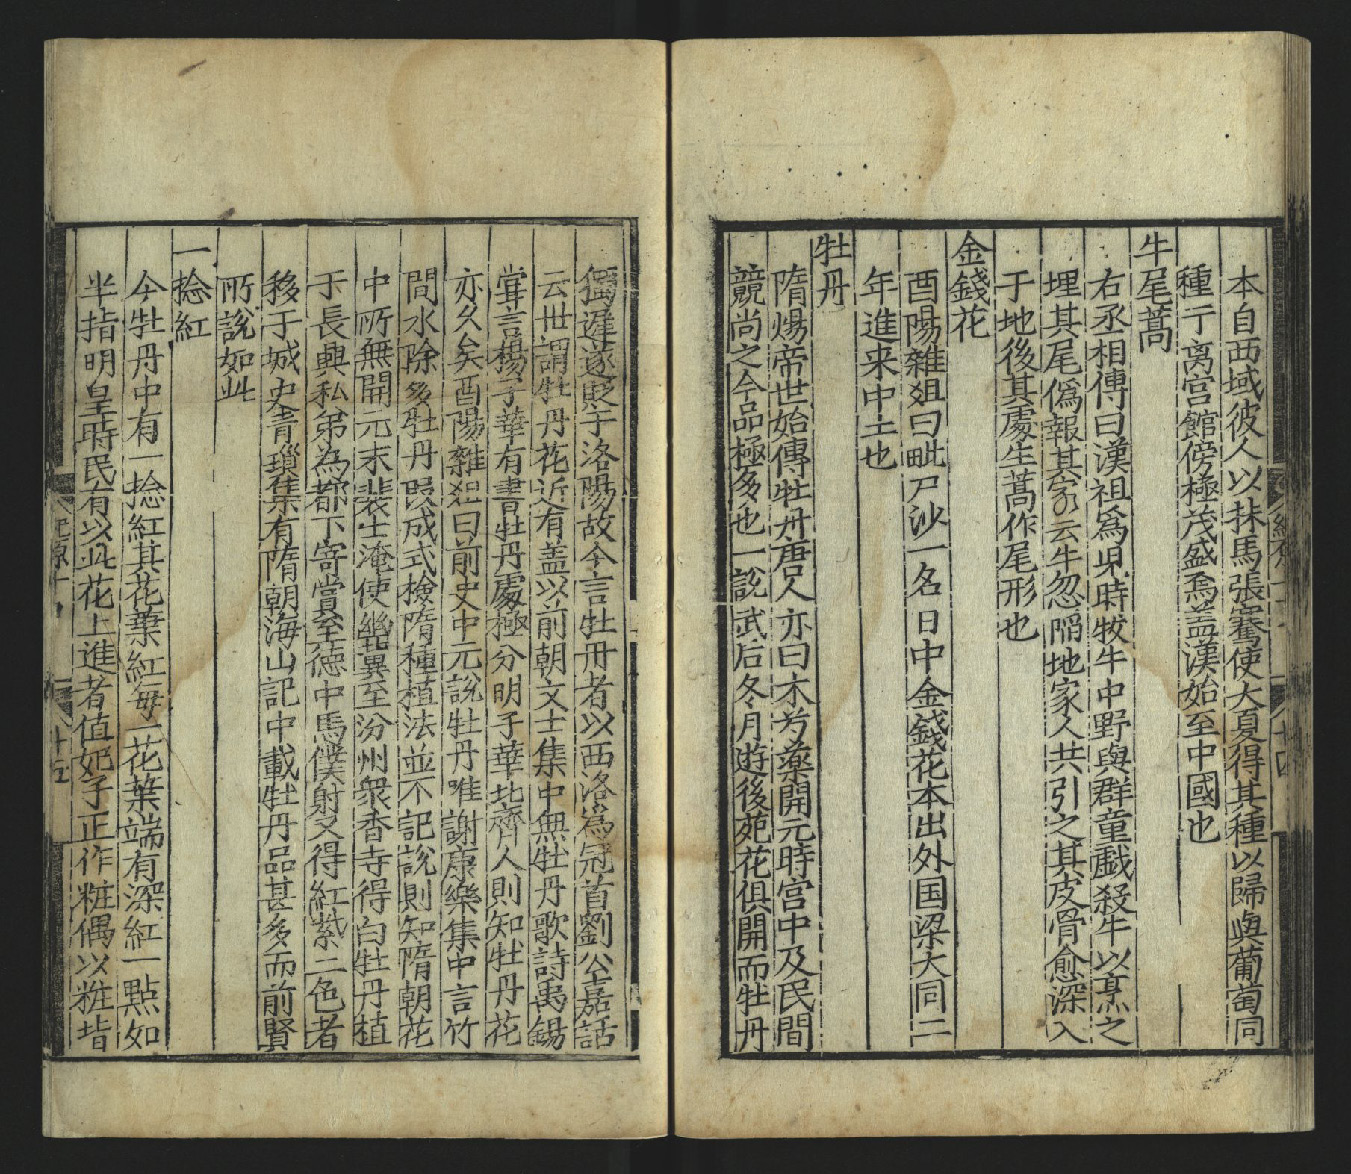 本自西域彼人以抹馬張騫使大夏得其種以歸與葡萄同
種于离宮館傍極茂盛焉盖漢始至中國也
牛尾蒿
右丞相傳曰漢祖爲児時牧牛中野與群童戲殺牛以烹之
埋其尾僞報其家云牛忽陷地家人共引之其皮骨愈深入
于地後其處生蒿作尾形也
金錢花
酉陽雜爼曰毗尸沙一名日中金錢花本出外国梁大同二
年進来中土也
牡丹
隋煬帝世始傳牡丹唐人亦曰木芍藥開元時宮中及民間
競尚之今品極多也一說武后冬月遊後苑花俱開而牡丹
獨遲遂貶于洛陽故今言牡丹者以西洛爲冠首劉公嘉話
云世謂牡丹花近有盖以前朝文士集中無牡丹歌詩禹錫
甞言楊子華有書牡丹處極分明子華北齊人則知牡丹花
亦久矣酉陽雜爼曰前史中元說牡丹唯謝康樂集中言竹
間水除多牡丹叚成式檢隋種植法並不記說則知隋朝花
中所無開元末裴士淹使幽冀至汾州衆香寺得白牡丹植
于長興私弟為都下竒賞至德中馬僕射又得紅紫二色者
移于城史青瑣集有隋朝海山記中載牡丹品甚多而前賢
所說如此
一捻紅
今牡丹中有一捻紅其花葉紅每一花葉端有深紅一點如
半指明皇時民有以此花上進者值妃子正作粧偶以粧指